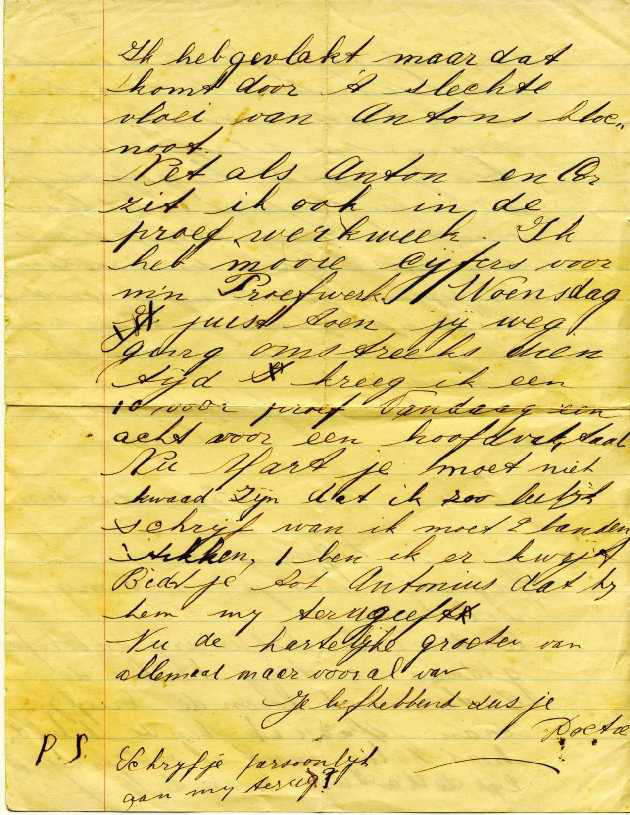 Ik heb gevlakt maar dat
komt door 't slechte
vloei van Antons bloc„
noot.
Net als Anton en Cor
zit ik ook in de
proef werkweek. Ik
heb mooie cijfers voor
m'n Proefwerk Woensdag
juist toen jy weg
ging omstreeks dien
tijd kreeg ik een
10 voor proef Vandaag een
acht voor een hoofdvak, taal
Nu Mart je moet niet
kwaad zijn dat ik zoo
schrijf wan ik moet 2 banden
1 ben ik er kwijt
Bidt je tot Antonius dat hy
hem my terug geeft
Nu de hartelijke groeten van
allemaal maar vooral van
Je liefhebbend zusje
P.S. Schryf je persoonlijk
aan my terug?